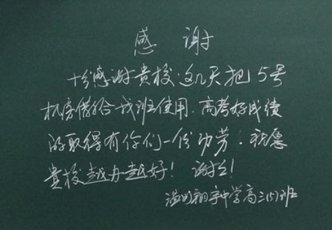 感谢
十分感谢贵校:这几天把5号
机房借给一我班使用.高考好成绩
的取得有你们一份功劳.祝愿
贵校越办越好!谢谢!
温州翔宇中学高三(5)班